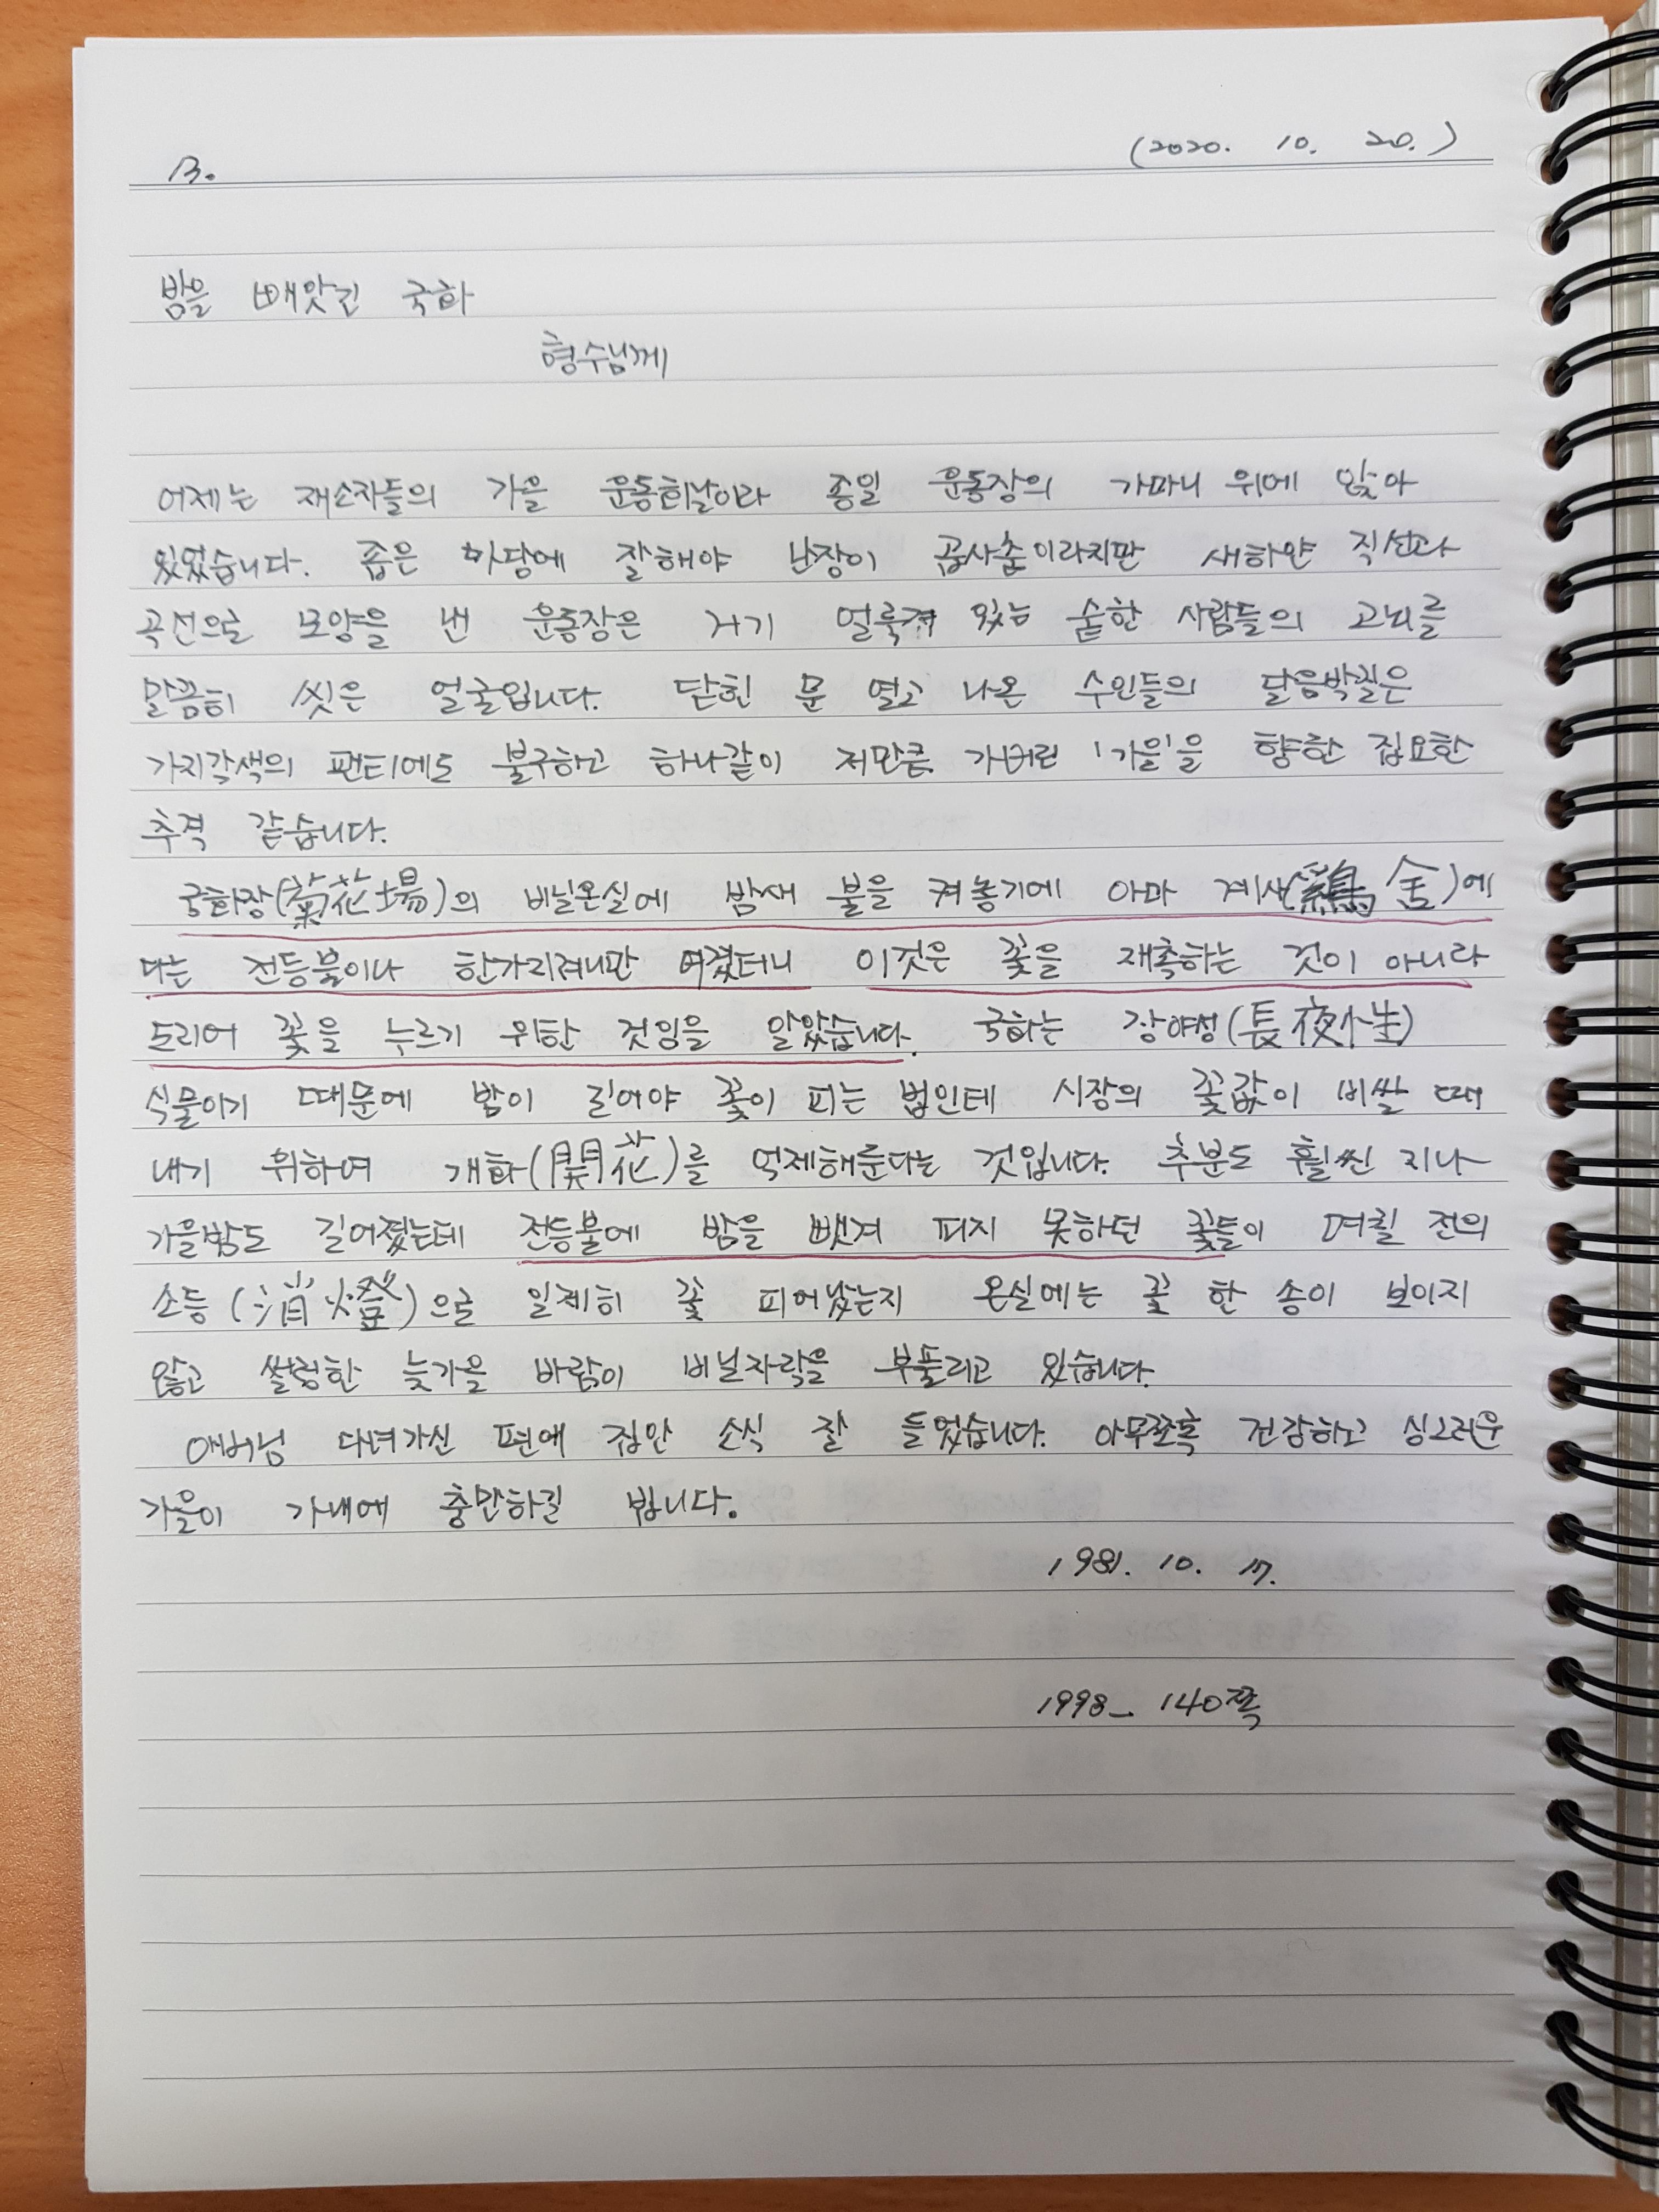 13.
(2020. 10. 20.)
밤을 빼앗긴 국화
형수님께
어제는 재소자들의 가을 운동회날이라 종일 운동장의 가마니 위에 앉아
있었습니다. 좁은 마당에 잘해야 난장이 곱사춤이라지만 새하얀 직선과
곡선으로 모양을 낸 운동장은 거기 얼룩져 있는 숱한 사람들의 고뇌를
말끔히 씻은 얼굴입니다. 닫힌 문 열고 나온 수인들의 달음박질은
가지각색의 팬티에도 불구하고 하나같이 저만큼 가버린 '가을'을 향한 집요한
추격 같습니다.
국화장(菊花場)의 비닐온실에 밤새 불을 켜놓기에 아마 계사(鷄舍)에
다는 전등불이나 한가지려니만 여겼더니 이것은 꽃을 재촉하는 것이 아니라
도리어 꽃을 누르기 위한 것임을 알았습니다. 국화는 장야성(長夜性)
식물이기 때문에 밤이 길어야 꽃이 피는 법인데 시장의 꽃값이 비쌀 때
내기 위하여 개화(開花)를 억제해둔다는 것입니다. 추분도 훨씬 지나
가을밤도 길어졌는데 전등불에 밤을 뺏겨 피지 못하던 꽃들이 며칠 전의
소등(消燈)으로 일제히 꽃 피어났는지 온실에는 꽃 한 송이 보이지
않고 썰렁한 늦가을 바람이 비닐자락을 부풀리고 있습니다.
어버님 다녀가신 편에 집안 소식 잘 들었습니다. 아무쪼록 건강하고 싱그러운
가을이 가내에 충만하길 빕니다.
1981. 10. 17.
1998_ 140쪽